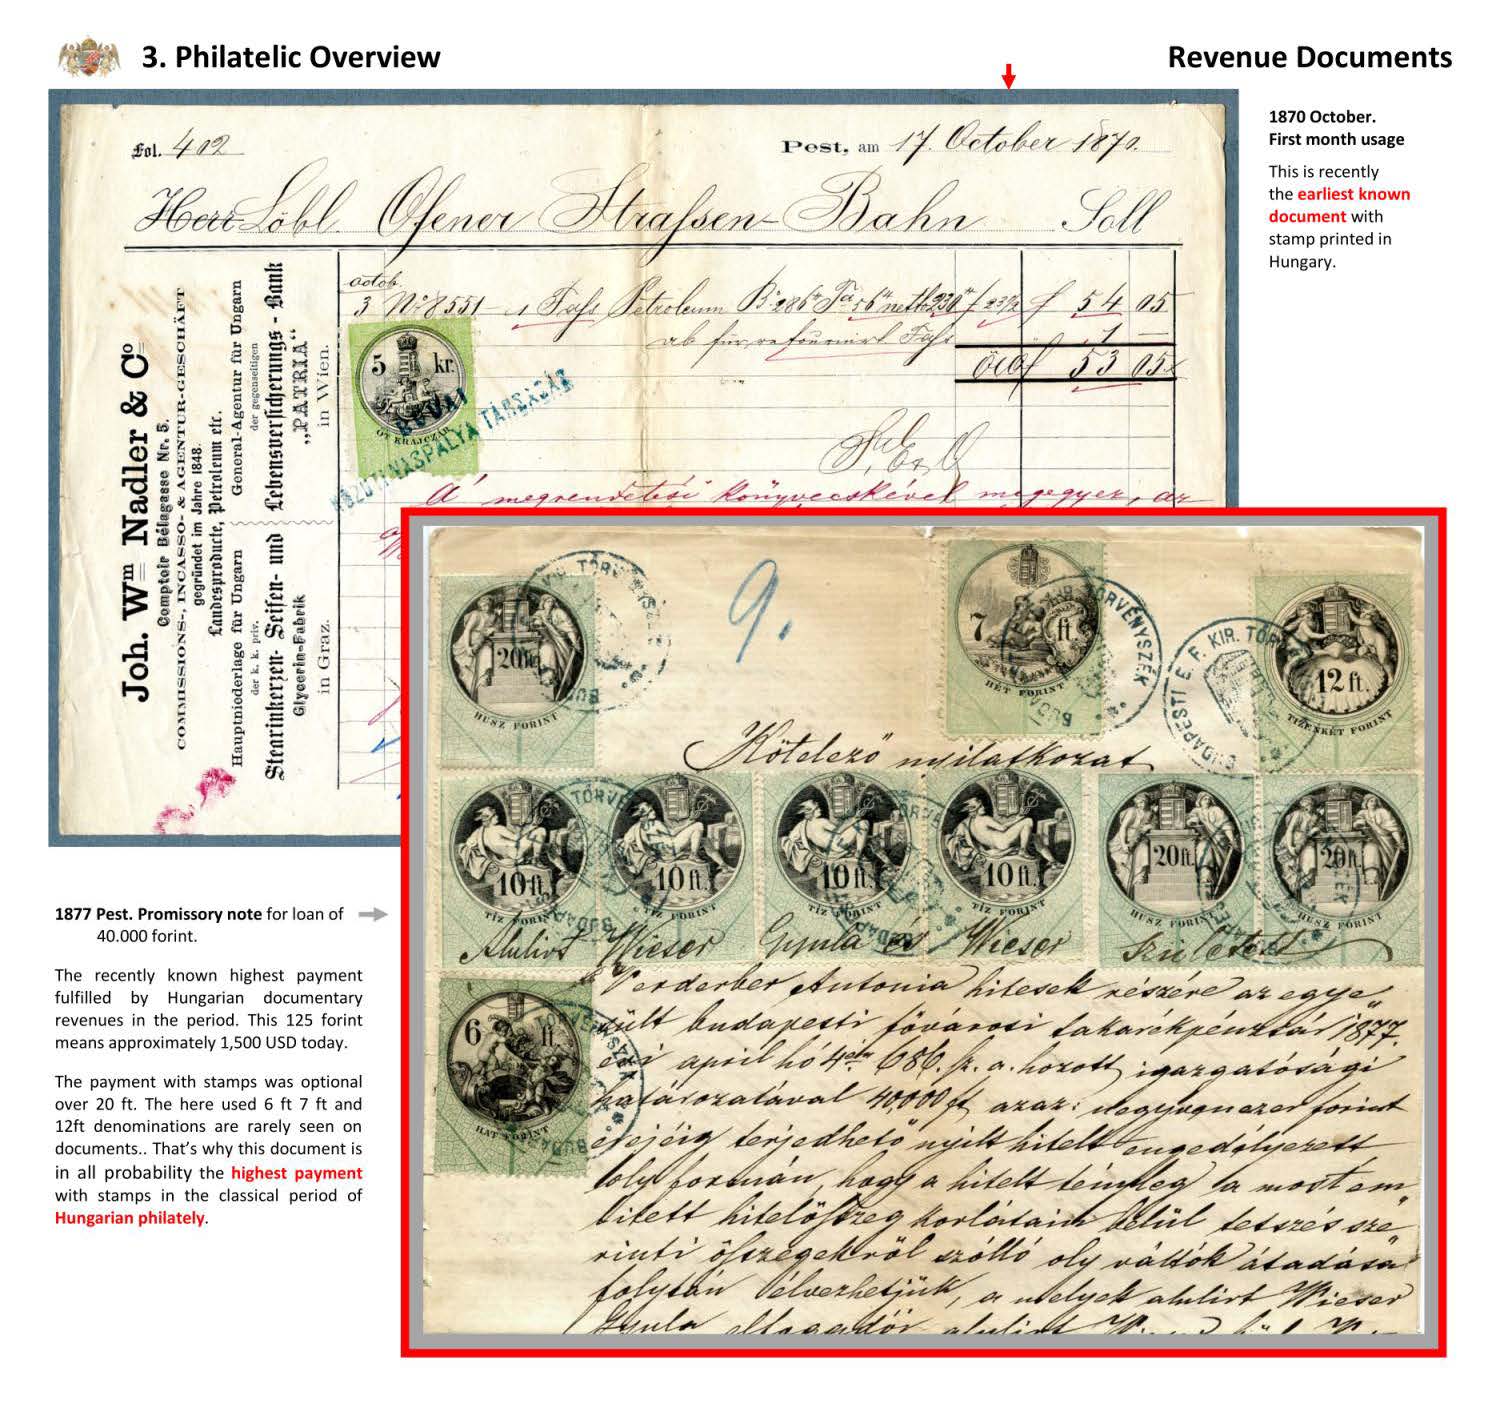 3. Philatelic Overview
Revenue Documents
1870 October.
First month usage
This is recently
the earliest known
document with
stamp printed in
Hungary.
Fol. 402
Pest, am 17. October 1870.
Herr Löbl. Ofener Strassen-Bahn Soll
octob.
3 No 8551 1 Fass Petroleum 54 05
ab für Fass 1 —
53 05
S. E. & O.
5 kr.
ÖT KRAJCZÁR
BUDAI
KÖZUTI VASPÁLYA TÁRSASÁG
A megrendelési könyvecskével megegyez, az
Joh. Wm Nadler & Co
Comptoir Bélagasse Nr. 5.
COMMISSIONS-, INCASSO- & AGENTUR-GESCHÄFT
gegründet im Jahre 1848.
Landesproducte, Petroleum etc.
Hauptniederlage für Ungarn
der k. k. priv.
Stearinkerzen- Seifen- und
Glycerin-Fabrik
in Graz.
General-Agentur für Ungarn
der gegenseitigen
Lebensversicherungs-Bank
„PATRIA"
in Wien.
9.
20 ft.
HUSZ FORINT
7 ft.
HÉT FORINT
12 ft.
TIZENKÉT FORINT
BUDAPESTI E. F. KIR. TÖRVÉNYSZÉK
Kötelező nyilatkozat
10 ft. 10 ft. 10 ft. 10 ft. 20 ft. 20 ft.
TÍZ FORINT TÍZ FORINT TÍZ FORINT TÍZ FORINT HUSZ FORINT HUSZ FORINT
Alulirt Wieser Gyula és Wieser Született
6 ft.
HAT FORINT
Verderber Antonia hitesek részére az egye
sült budapesti fővárosi takarékpénztár 1877.
évi april hó 4én 686. sz. a. hozott igazgatósági
határozatával 40,000 ft azaz: negyvenezer forint
erejéig terjedhető nyílt hitelt engedélyezett
oly formán, hogy a hitelt tényleg a most em
litett hitelösszeg korlátain belül tetszés sze
rinti összegekről szólló oly váltók átadása
folytán élvezhetjük, a melyek alulirt Wieser
Gyula elfogadói alulirt
1877 Pest. Promissory note for loan of
40.000 forint.
The recently known highest payment
fulfilled by Hungarian documentary
revenues in the period. This 125 forint
means approximately 1,500 USD today.
The payment with stamps was optional
over 20 ft. The here used 6 ft 7 ft and
12ft denominations are rarely seen on
documents.. That's why this document is
in all probability the highest payment
with stamps in the classical period of
Hungarian philately.